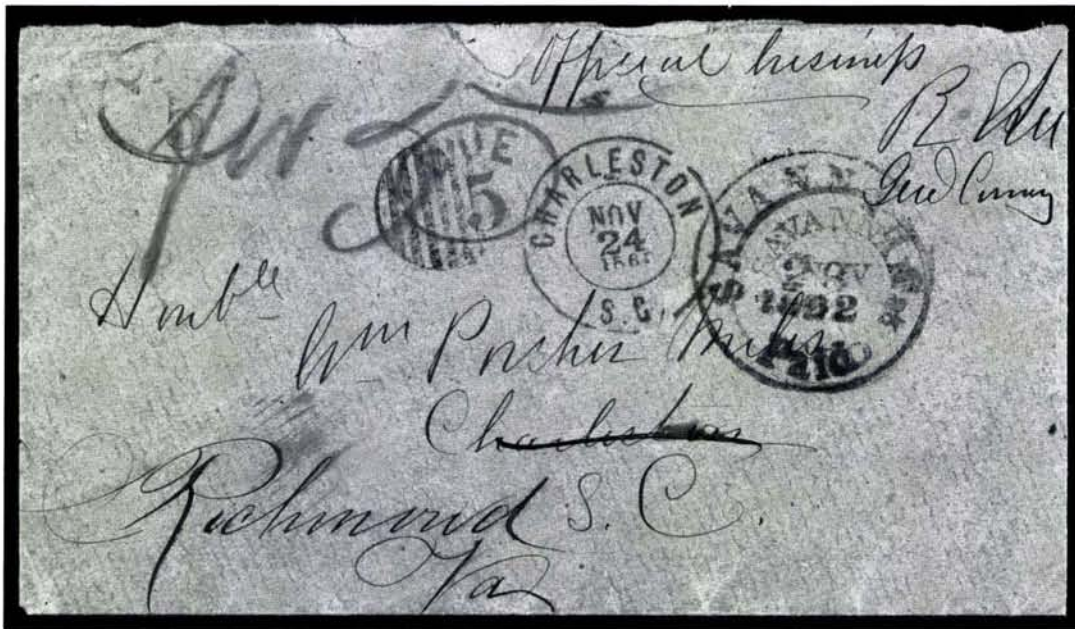 Official business
R E Lee
Genl Comg
DUE
5
CHARLESTON
NOV
24
S.C.
SAVANNAH
SAVANNAH
NOV
Paid
Honble
Wm Porcher Miles
Charleston
S. C.
Richmond
Va